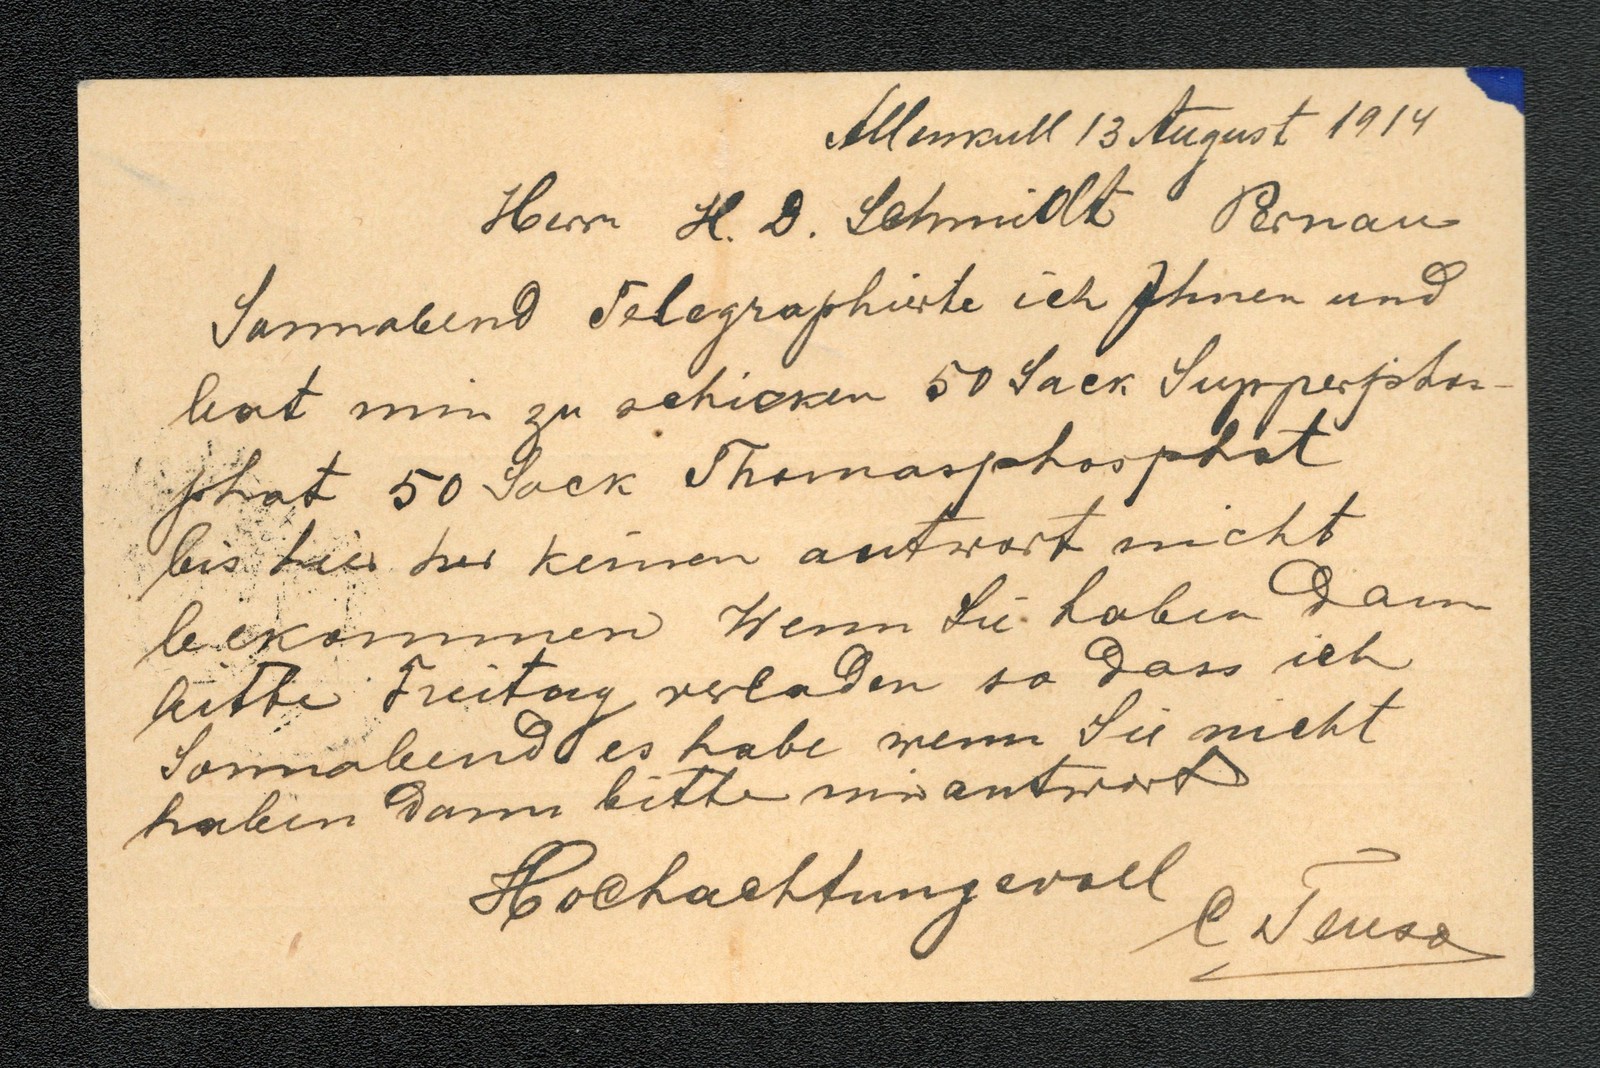 Allenkull 13 August 1914
Herrn H. D. Schmidt Pernau
Sonnabend Telegraphierte ich Ihnen und
bat mir zu schicken 50 Sack Supperphos-
phat 50 Sack Thomasphosphat
bis hier her keinen antwort nicht
bekommen Wenn Sie haben Dann
bitte Freitag verladen so Dass ich
Sonnabend es habe wenn Sie nicht
haben Dann bitte mir antwort
Hochachtungsvoll
C